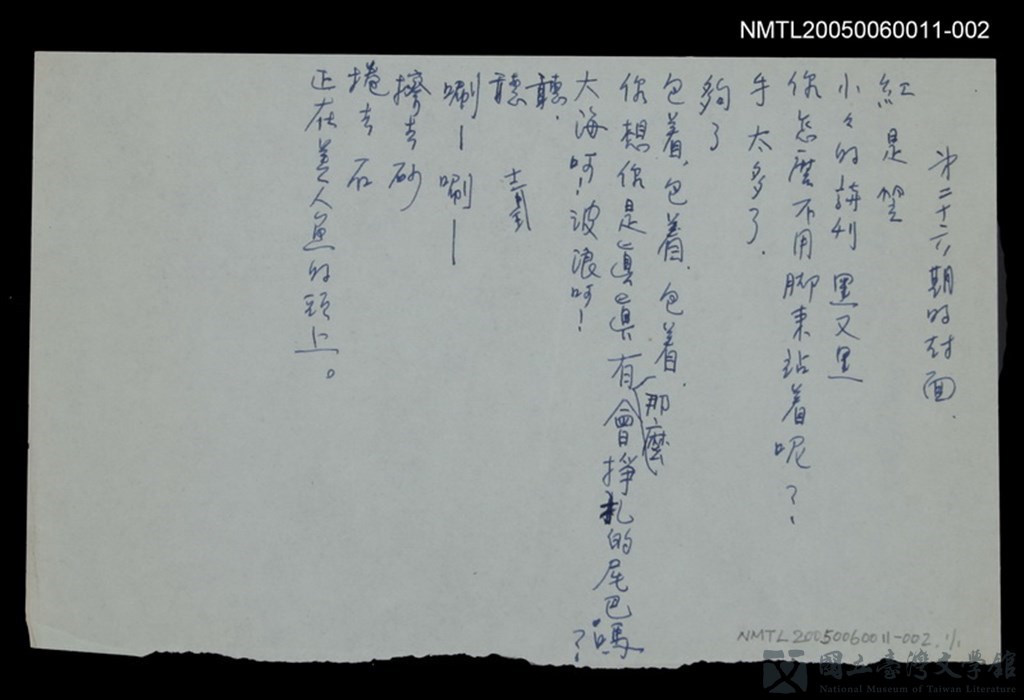 NMTL20050060011-002
第二十六期的封面.
紅是笠
小々的講刊 黑又黑
你怎麼不用脚來站着呢?
手太多了.
夠了
包着.包着.包着.
你想你是眞眞有那麼會掙扎的尾巴嗎?
大海呵!波浪呵!
聽.
聽 濤
唰—唰—
擠去砂
捲去石
正在美人魚的頭上。
NMTL20050060011-002. 1/1
國立臺灣文學館
National Museum of Taiwan Literature